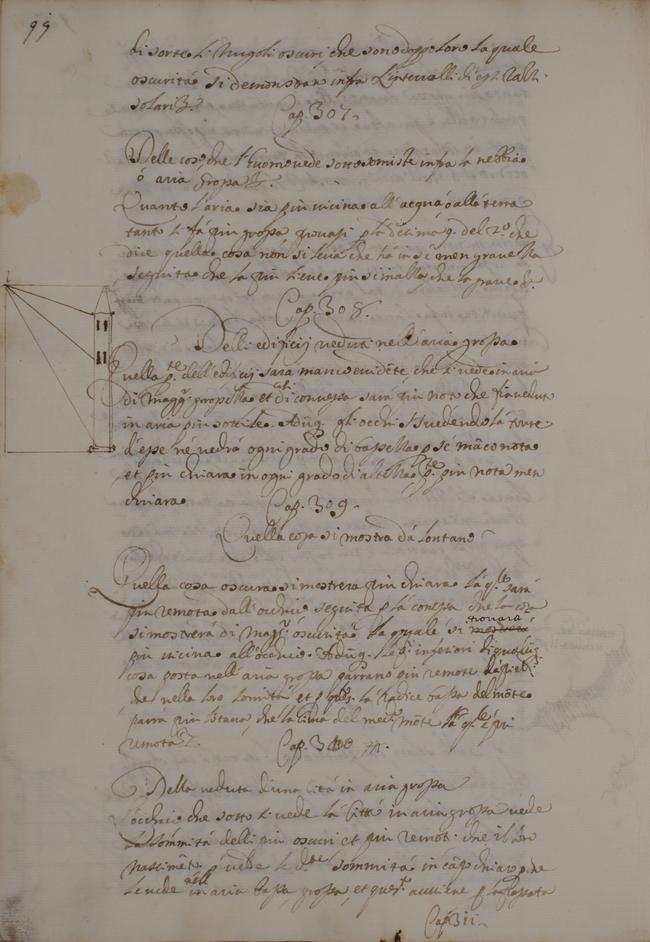 99
di sorte li Nugoli oscuri che sono doppo loro la quale
oscurità si demonstra infra l'intervalli di
solari &.
Cap. 307.
Delle cose che l'huomo vede sotto se miste infra la nebbia
ò aria grossa &.
Quanto l'aria sia più vicina all'acqua ò alla terra
tanto si fà più grossa provasi p la decima 9. del 2.º che
dice quella cosa non si leva che hà in sé men gravezza
seguita che la più lieve più s'inalza che la grave &.
Cap. 308.
Delli edificij veduti nell'aria grossa.
Quella p.te dell'edificij sara manco evidẽte che si vede in aria
di magg.r grossezza et cosi di converso sarà più nota che fia veduta
in aria più sottile. Aduq. gli occhi vedendo la torre
d'esse ne vedrà ogni grado di bassezza p.te mãco nota
et più chiara in ogni grado di altezza p.te più nota men
chiara.
Cap. 309.
Quella cosa si mostra dà lontano
Quella cosa oscura si mostrerà più chiara la q.le sarà
più remota dall'occhio seguita p la conversa che la cosa
si mostrerà di magg.r oscurità la quale si trovarà
più vicina all'occhio. Aduq. le p.ti inferiori di qualuq.
cosa posta nell'aria grossa parrano più remote
che nella loro somità et p la radice bassa del mõte
parrà più lõtana, che la cima del med.mo mõte la q.le è più
remota &.
Cap. 310
Della veduta di una città in aria grossa
L'occhio che sotto si vede la Città in aria grossa vede
la sommità delli più oscuri et più remoti che il loro
nascimẽto p vede le d.te sommità in cãpo chiaro p che
le vede nell'aria bassa, grossa, et questo avviene p la passata
Cap: 311